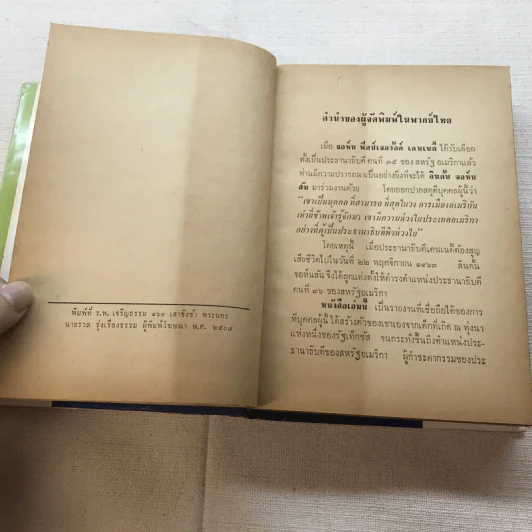 พิมพ์ที่ ร.พ. เจริญธรรม ๑๖๐ เสาชิงช้า พระนคร
นายรวล รุ่งเรืองธรรม ผู้พิมพ์โฆษณา พ.ศ. ๒๕๐๗
คำนำของผู้จัดพิมพ์ในพากย์ไทย
เมื่อ จอห์น ฟิตซ์เจอรัลด์ เคนเนดี้ ได้รับเลือก
ตั้งเป็นประธานาธิบดี คนที่ ๓๕ ของ สหรัฐ อเมริกาแล้ว
ท่านมีความปรารถนาเป็นอย่างยิ่งที่จะให้ ลินดั้น จอห์น
สัน มาร่วมงานด้วย โดยออกปากสดุดีบุคคลผู้นี้ว่า
“เขาเป็นบุคคล ที่สามารถ ที่สุดในวง การเมืองอเมริกัน
เท่าที่ข้าพเจ้ารู้จักมา เขามีความห่วงใยประเทศอเมริกา
อย่างที่ผู้เป็นประธานาธิบดีพึงห่วงใย”
โดยเหตุนี้ เมื่อประธานาธิบดีเคนเนดี้ต้องสูญ
เสียชีวิตไปในวันที่ ๒๒ พฤศจิกายน ๑๙๖๓ ลินดั้น
จอห์นสัน จึงได้ถูกแต่งตั้งให้ดำรงตำแหน่งประธานาธิบดี
คนที่ ๓๖ ของสหรัฐอเมริกา
หนังสือเล่มนี้ เป็นรายงานที่เชื่อถือได้ของการ
ที่บุคคลผู้นี้ ได้สร้างตัวของเขาเองจากเด็กที่เกิด ณ ทุ่งนา
แห่งหนึ่งของรัฐเท็กซัส จนกระทั่งขึ้นถึงตำแหน่งประ-
ธานาธิบดีของสหรัฐอเมริกา ผู้กำชะตากรรมของประ